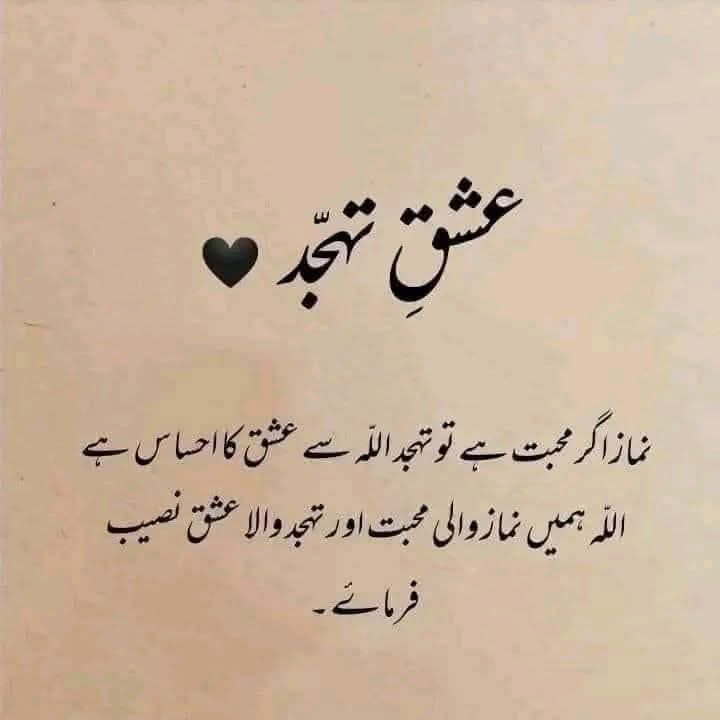 عشقِ تہجّد 🖤
نماز اگر محبت ہے تو تہجد اللّہ سے عشق کا احساس ہے
اللّہ ہمیں نماز والی محبت اور تہجد والا عشق نصیب
فرمائے۔